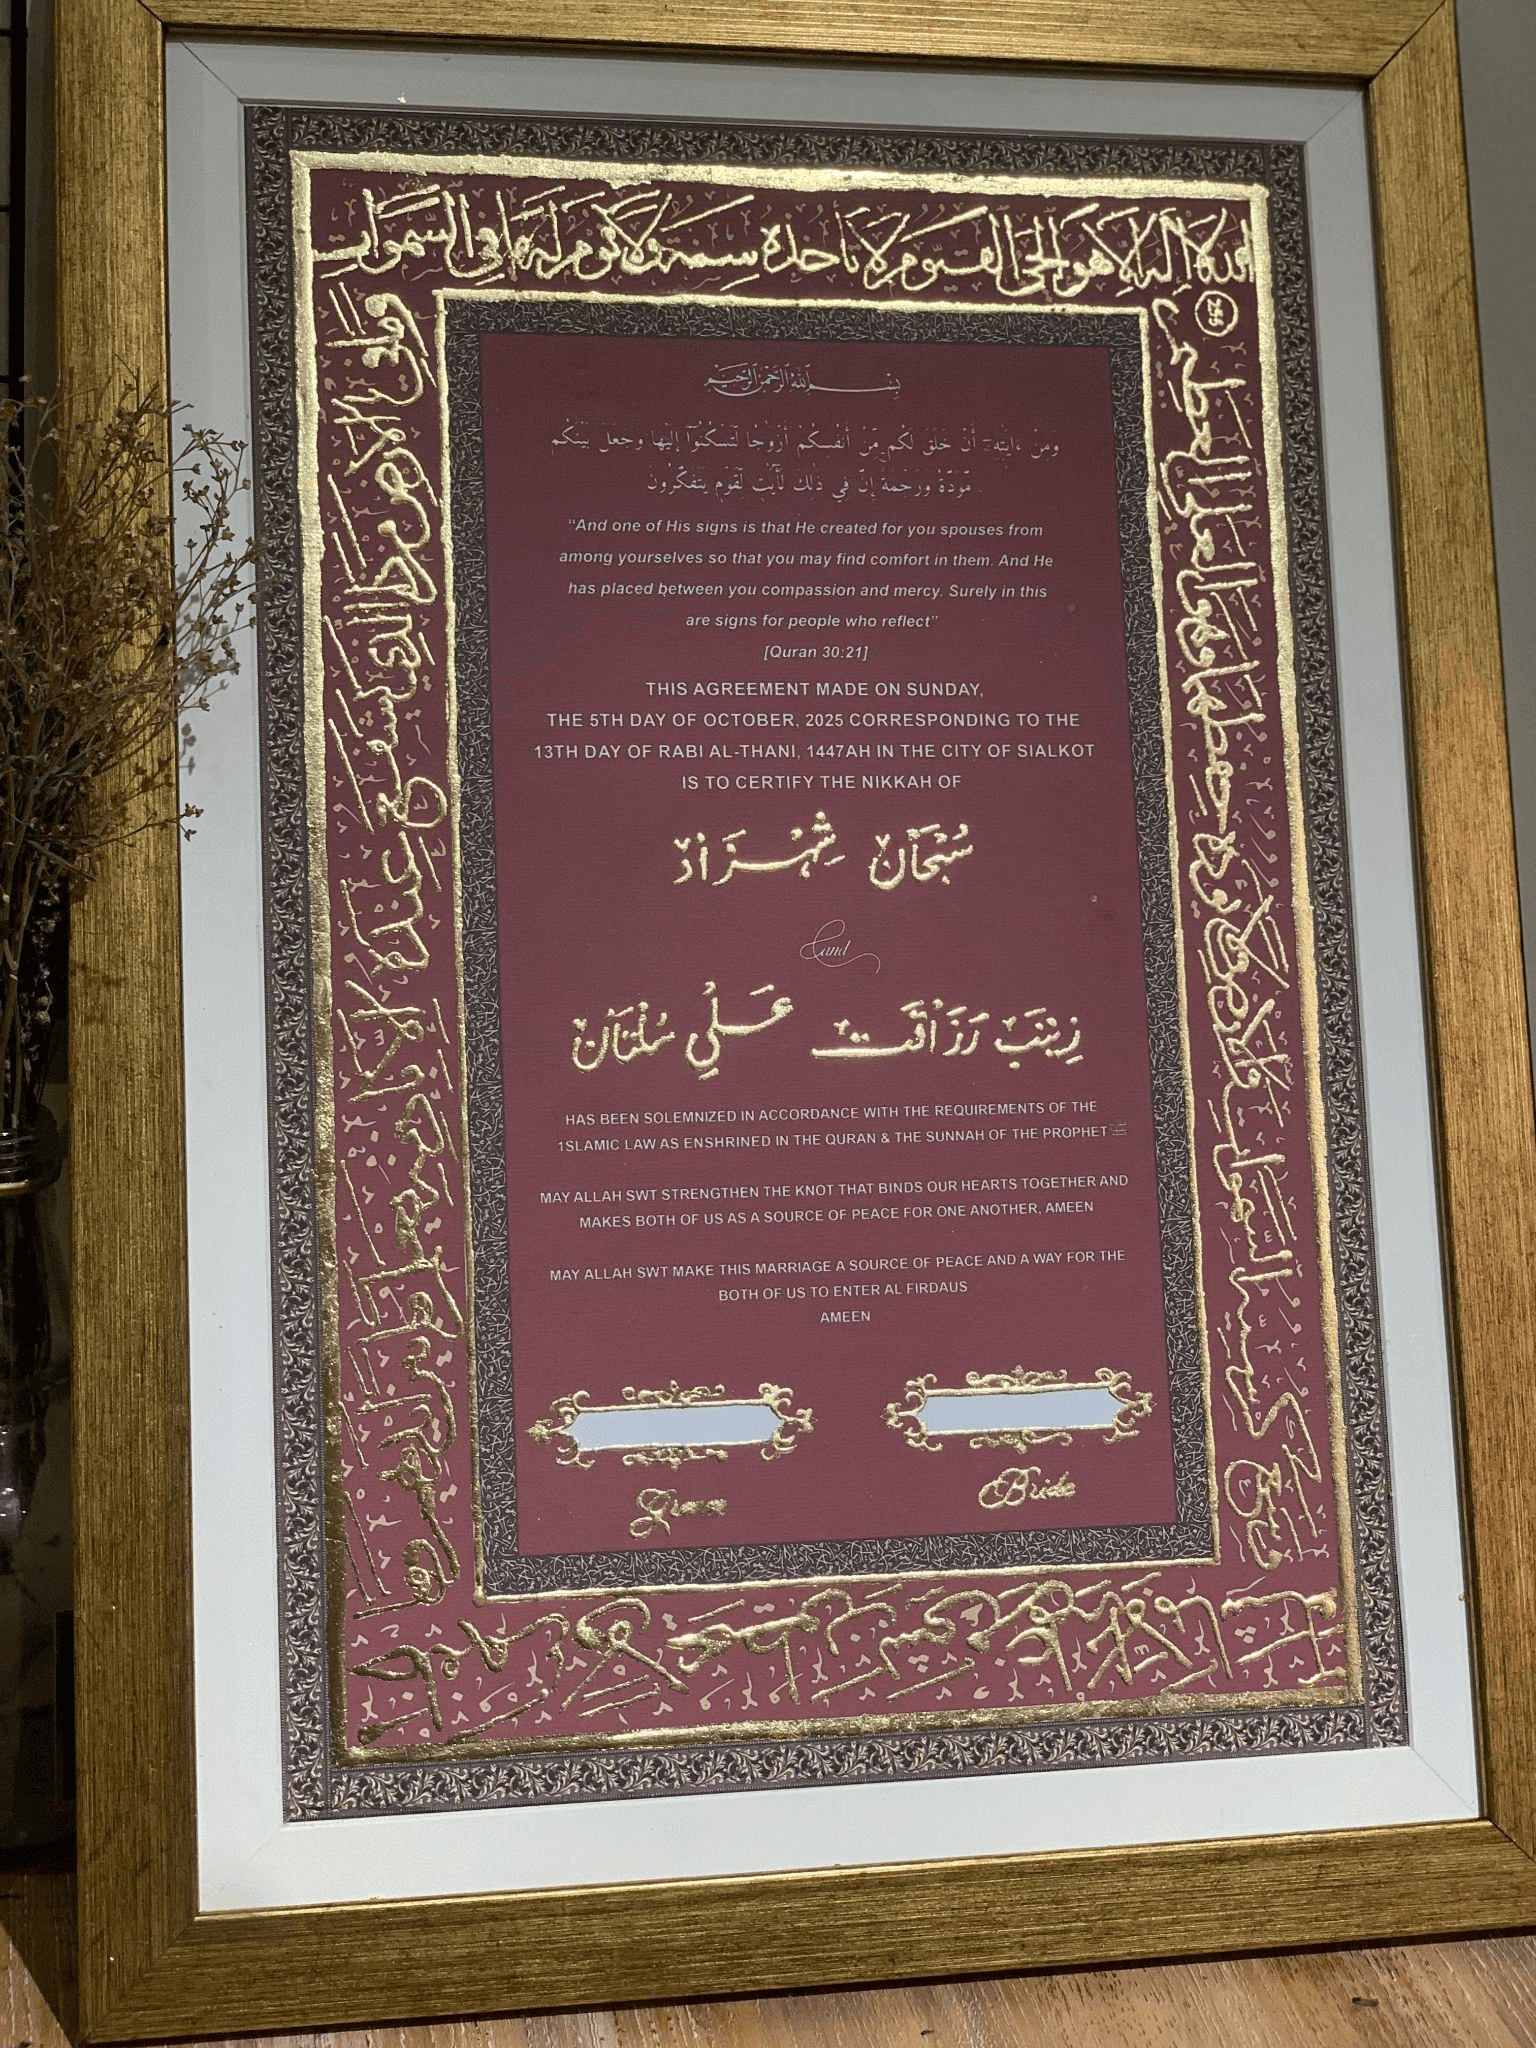 الله لا إله إلا هو الحي القيوم لا تأخذه سنة ولا نوم له ما في السموات
وما في الأرض من ذا الذي يشفع عنده إلا
255
بِسْمِ اللهِ الرَّحْمٰنِ الرَّحِيْمِ
وَمِنْ ءَايَٰتِهِۦٓ أَنْ خَلَقَ لَكُم مِّنْ أَنفُسِكُمْ أَزْوَٰجًا لِّتَسْكُنُوٓا۟ إِلَيْهَا وَجَعَلَ بَيْنَكُم
مَّوَدَّةً وَرَحْمَةً إِنَّ فِي ذَٰلِكَ لَءَايَٰتٍ لِّقَوْمٍ يَتَفَكَّرُونَ
“And one of His signs is that He created for you spouses from
among yourselves so that you may find comfort in them. And He
has placed between you compassion and mercy. Surely in this
are signs for people who reflect”
[Quran 30:21]
THIS AGREEMENT MADE ON SUNDAY,
THE 5TH DAY OF OCTOBER, 2025 CORRESPONDING TO THE
13TH DAY OF RABI AL-THANI, 1447AH IN THE CITY OF SIALKOT
IS TO CERTIFY THE NIKKAH OF
سُبْحَان شِهْزَاد
and
زِينَب رَزَاقَت عَلِي سُلتَان
HAS BEEN SOLEMNIZED IN ACCORDANCE WITH THE REQUIREMENTS OF THE
1SLAMIC LAW AS ENSHRINED IN THE QURAN & THE SUNNAH OF THE PROPHET ﷺ
MAY ALLAH SWT STRENGTHEN THE KNOT THAT BINDS OUR HEARTS TOGETHER AND
MAKES BOTH OF US AS A SOURCE OF PEACE FOR ONE ANOTHER, AMEEN
MAY ALLAH SWT MAKE THIS MARRIAGE A SOURCE OF PEACE AND A WAY FOR THE
BOTH OF US TO ENTER AL FIRDAUS
AMEEN
Groom
Bride